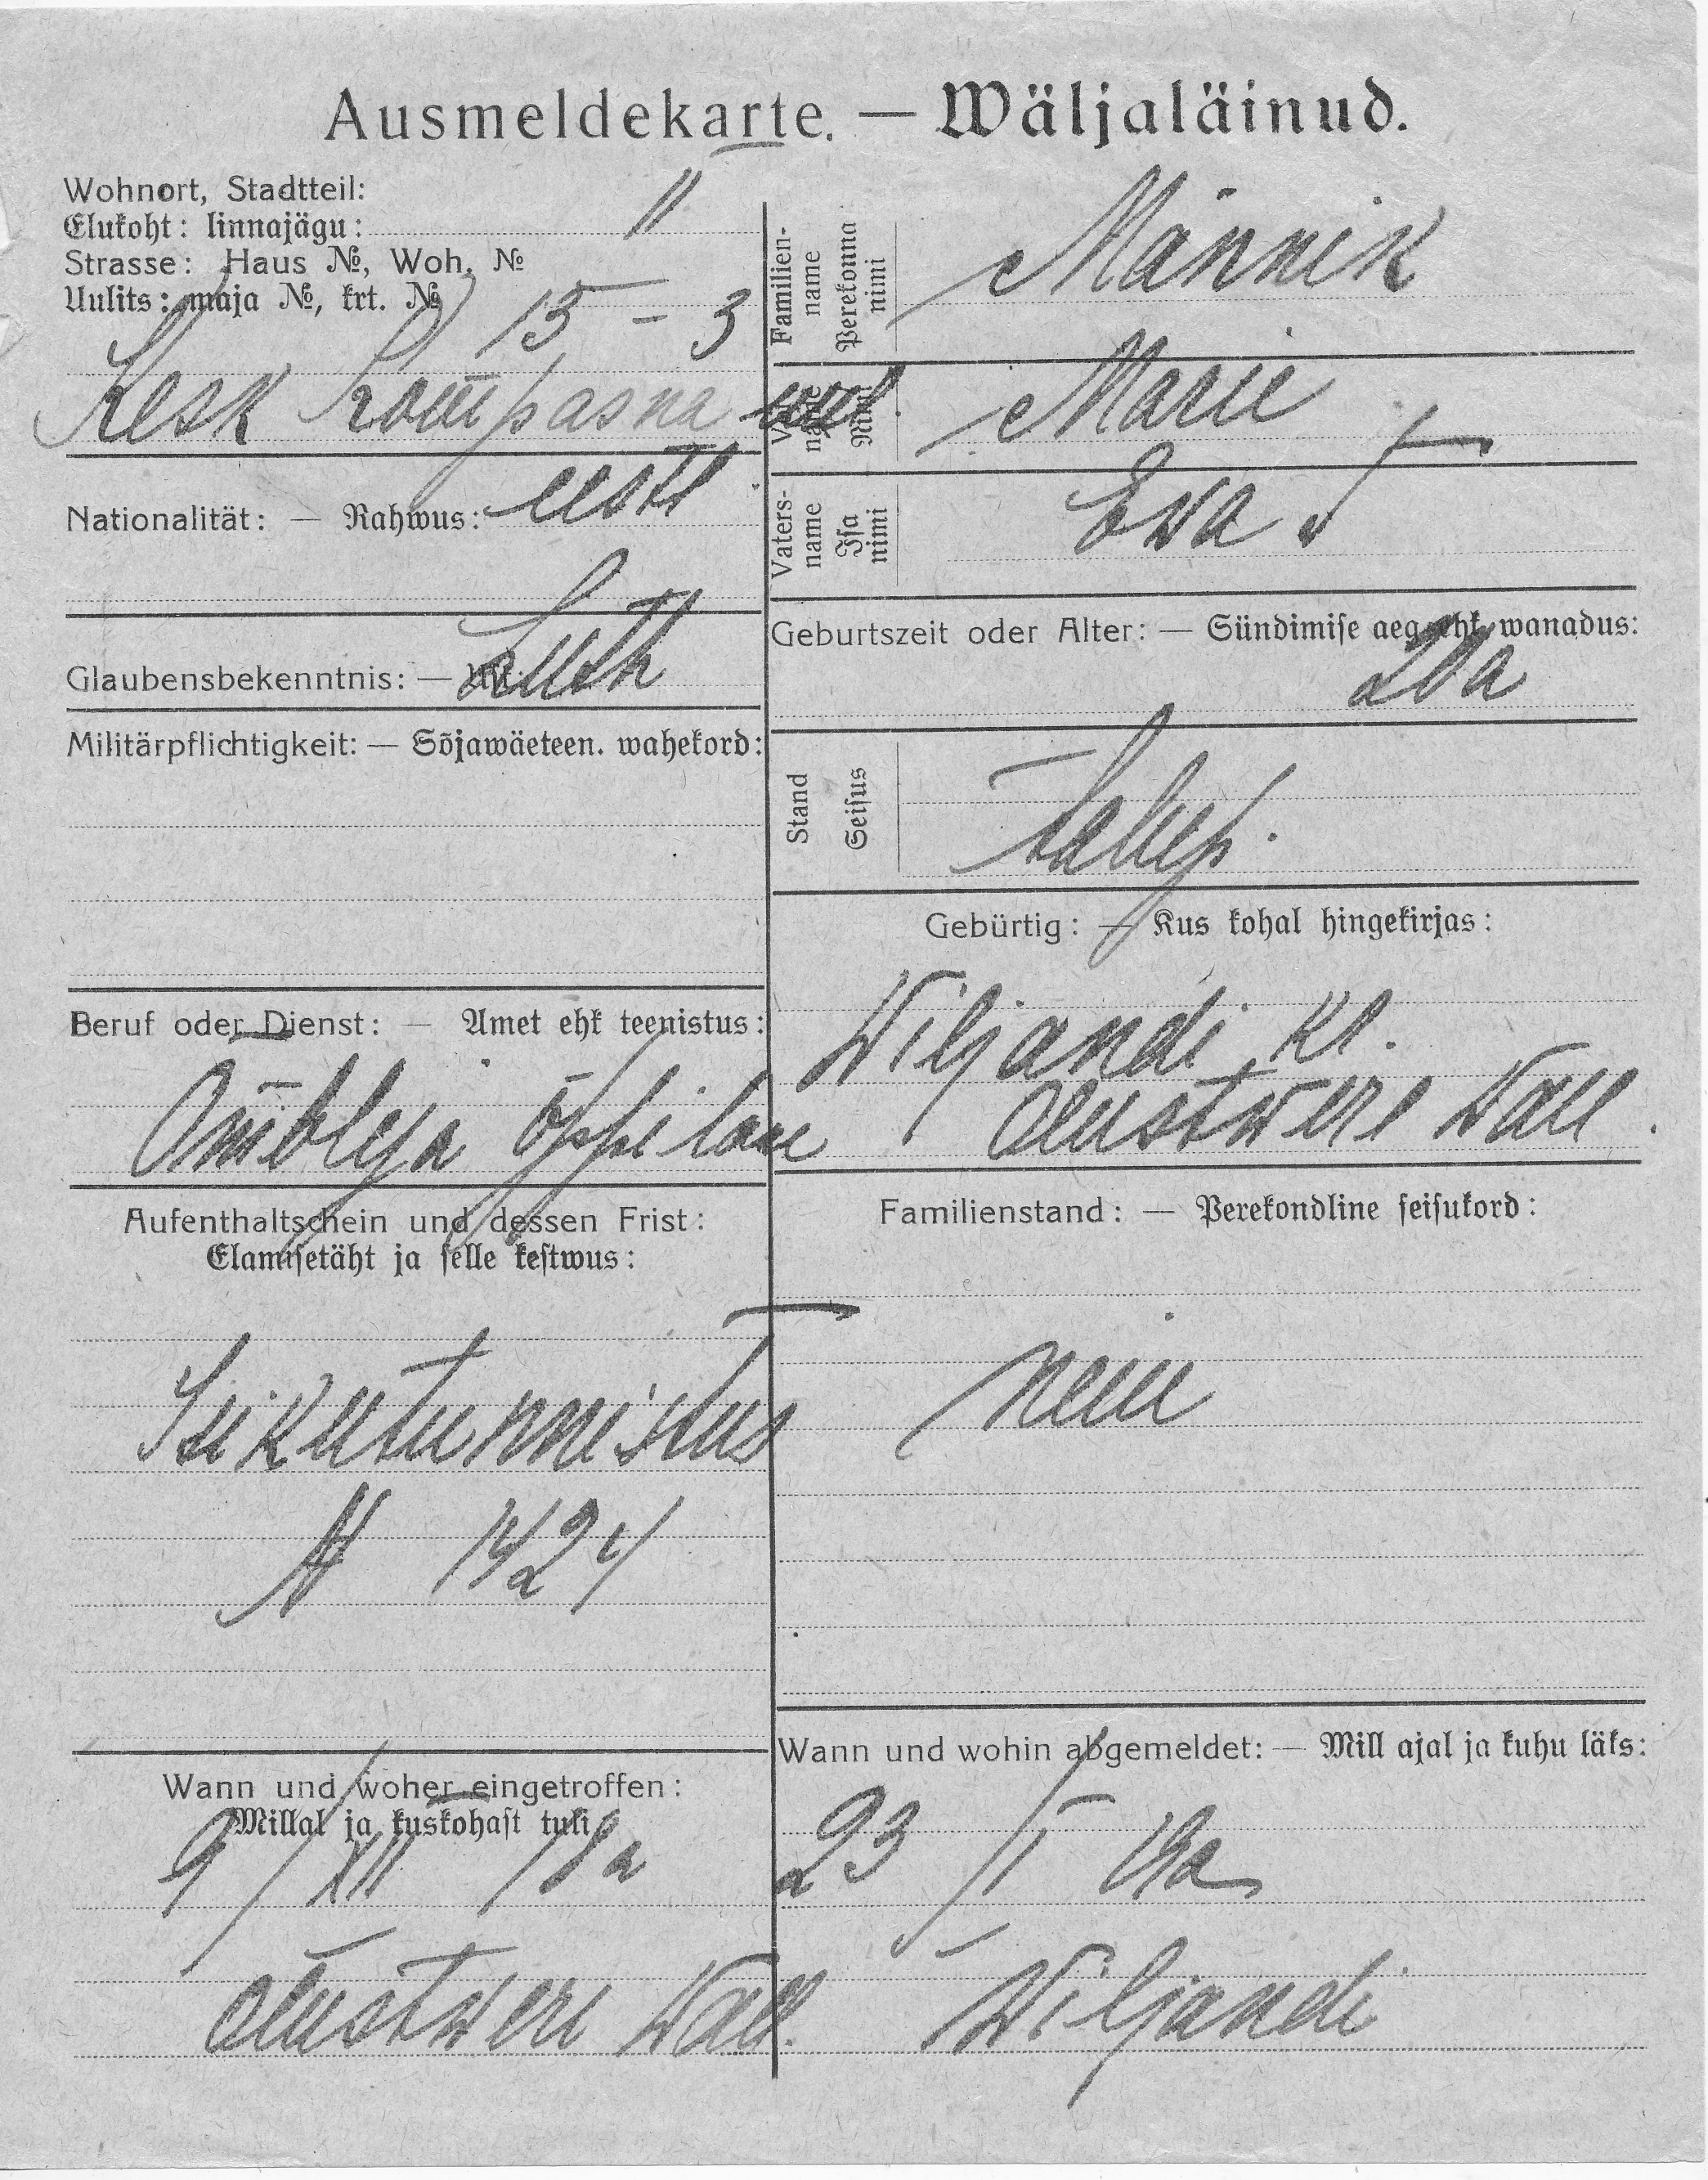 Ausmeldekarte. — Wäljaläinud.
Wohnort, Stadtteil:
Elukoht: linnajägu: II
Strasse: Haus №, Woh. №
Uulits: maja №, krt. № 15 – 3
Kesk Kompasna
Nationalität: — Rahwus: eesti
Glaubensbekenntnis: — Luth
Militärpflichtigkeit: — Sõjawäeteen. wahekord:
Beruf oder Dienst: — Amet ehk teenistus:
Õmbleja õppilane
Aufenthaltschein und dessen Frist:
Elamisetäht ja selle kestwus:
Isikutunnistus
N 1424
Wann und woher eingetroffen:
Millal ja kuskohast tuli
9/XII 18 a
Olustwere Wall.
Familien-
name
Perekonna
nimi
Männik
Marie
Vaters-
name
Isa
nimi
Ewa t
Geburtszeit oder Alter: — Sündimise aeg ehk wanadus:
20a
Stand
Seisus
talup.
Gebürtig: — Kus kohal hingekirjas:
Wiljandi kr.
Olustwere Wall.
Familienstand: — Perekondline seisukord:
neiu
Wann und wohin abgemeldet: — Mill ajal ja kuhu läks:
23/I 19a
Wiljandi